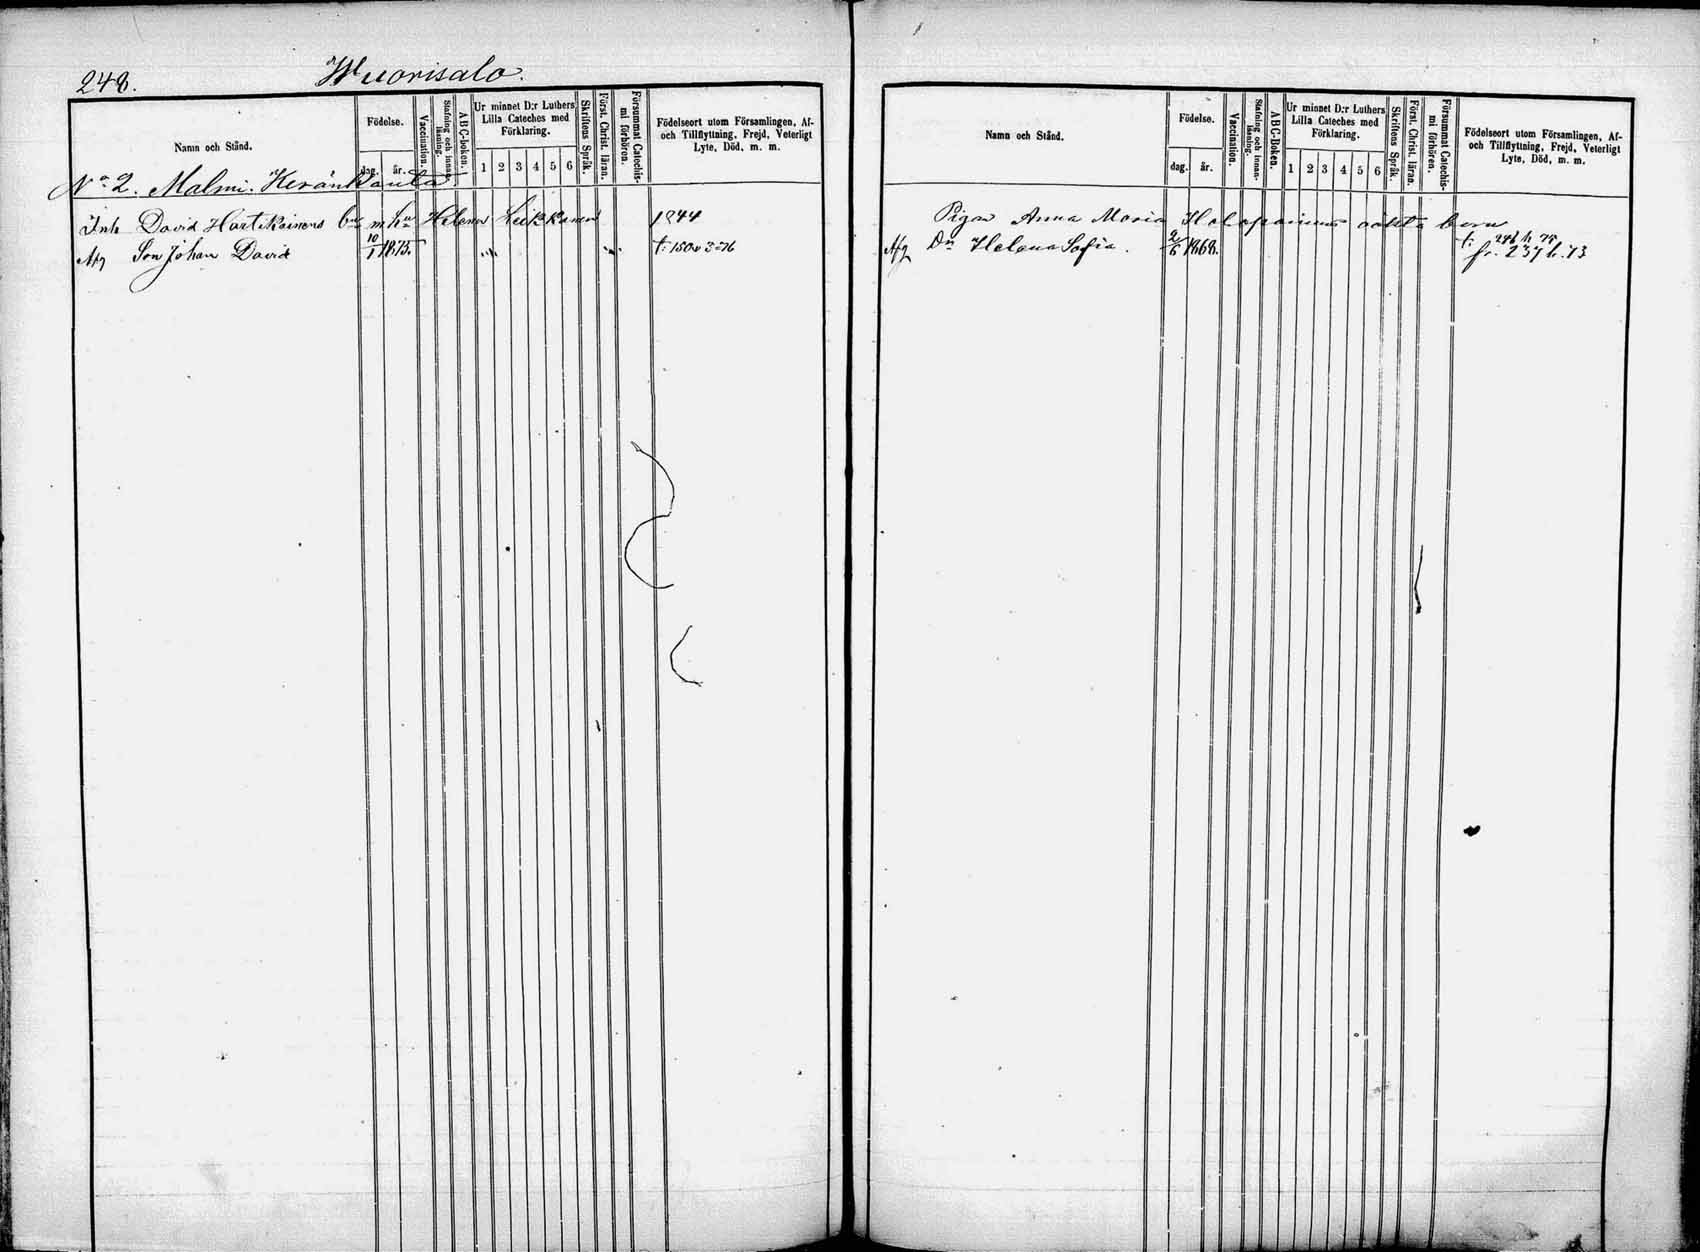 248.
Wuorisalo.
Namn och Stånd.
Födelse.
dag.
år.
Vaccination.
Stafning och innan-
läsning.
ABC-boken.
Ur minnet D:r Luthers
Lilla Cateches med
Förklaring.
1 2 3 4 5 6
Skriftens Språk.
Först. Christ. läran.
Försummat Catechis-
mi förhören.
Födelseort utom Församlingen, Af-
och Tillflyttning, Frejd, Veterligt
Lyte, Död, m. m.
No 2. Malmi. Keränkauta
Inh David Hartikainens Helena Leikkanen 1844
Son Johan David 10/1 1875. t. 150 v 3/76
Namn och Stånd.
Födelse.
dag.
år.
Vaccination.
Stafning och innan-
läsning.
ABC-Boken.
Ur minnet D:r Luthers
Lilla Cateches med
Förklaring.
1 2 3 4 5 6
Skriftens Språk.
Först. Christ. läran.
Försummat Catechis-
mi förhören.
Födelseort utom Församlingen, Af-
och Tillflyttning, Frejd, Veterligt
Lyte, Död, m. m.
Pigan Anna Maria Holopainens oäkta barn
Dr Helena Sofia. 1868.
fr. 237 h. 73